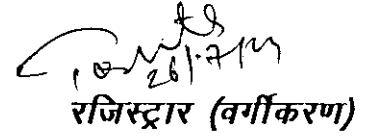 26/7/19
रजिस्ट्रार (वर्गीकरण)